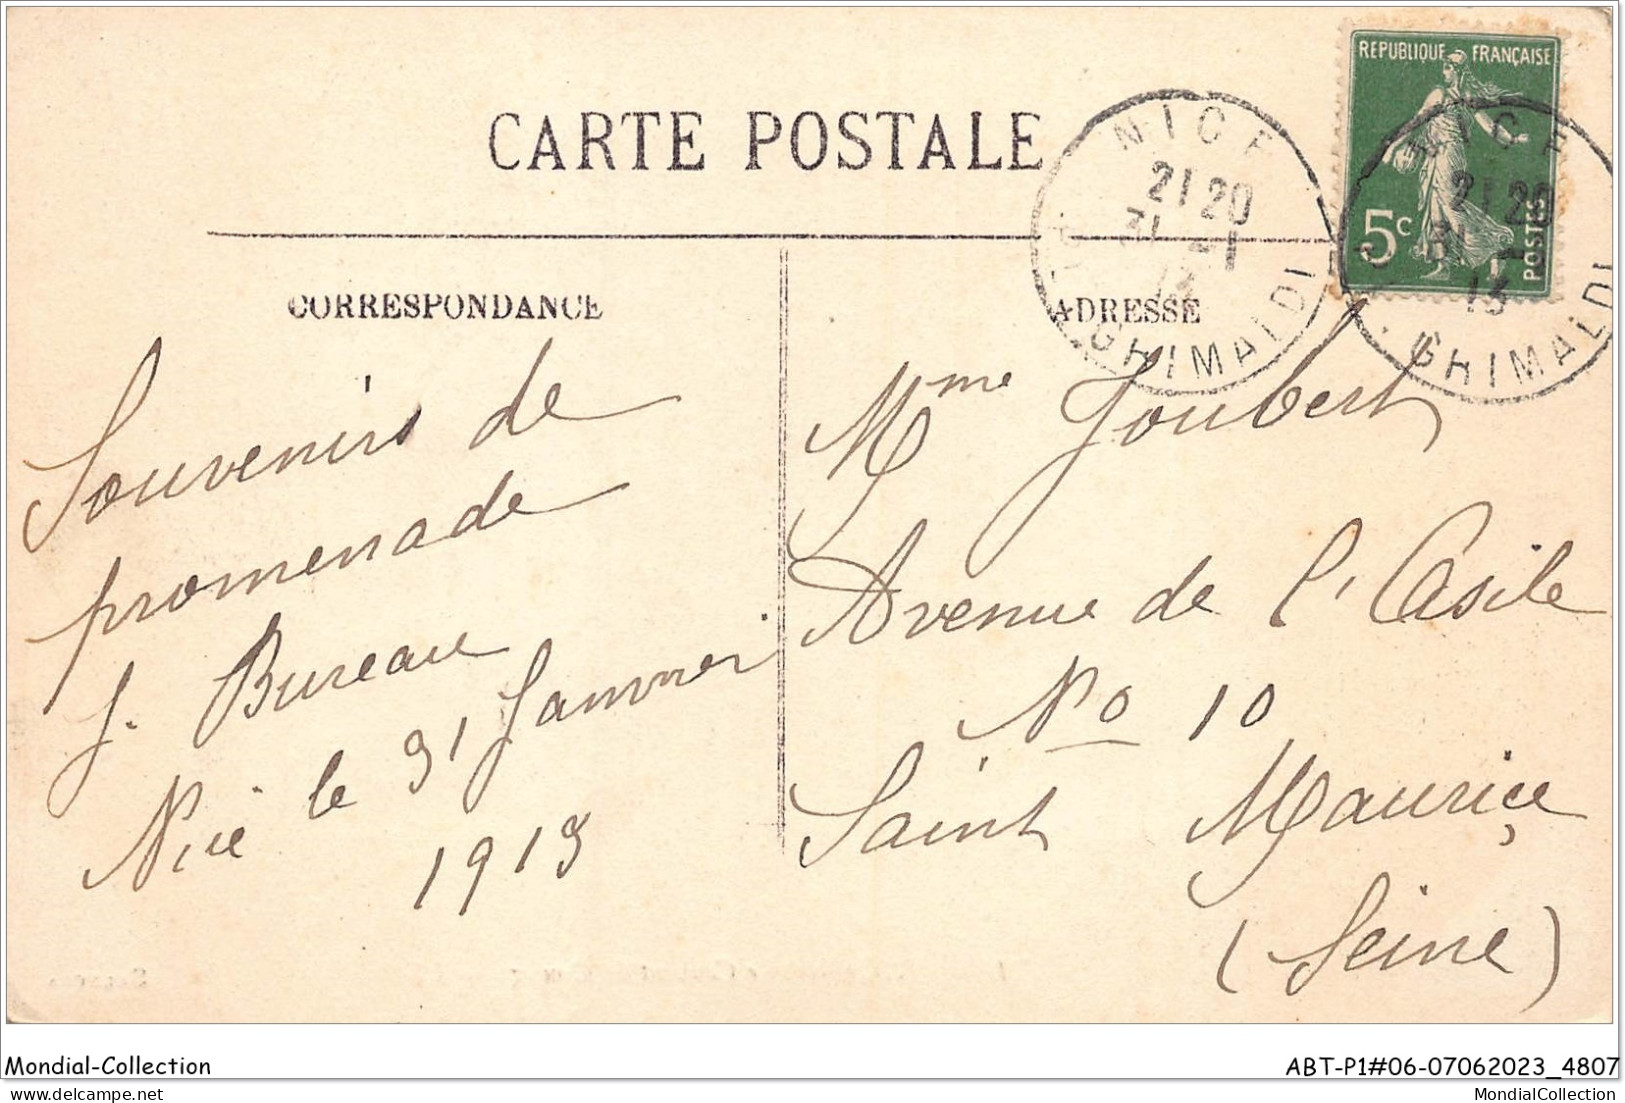 CARTE POSTALE
REPUBLIQUE FRANÇAISE
5c
POSTES
NICE
21 20
31 -1
13
GHIMALDI
NICE
21 20
31 -1
13
GHIMALDI
CORRESPONDANCE
ADRESSE
Souvenirs de
promenade
J. Bureau
Nice le 31 Janvier
1913
Mme Joubert
Avenue de l'Asile
No 10
Saint Maurice
(Seine)
Mondial-Collection
ABT-P1#06-07062023_4807
mondialcollection
MondialCollection